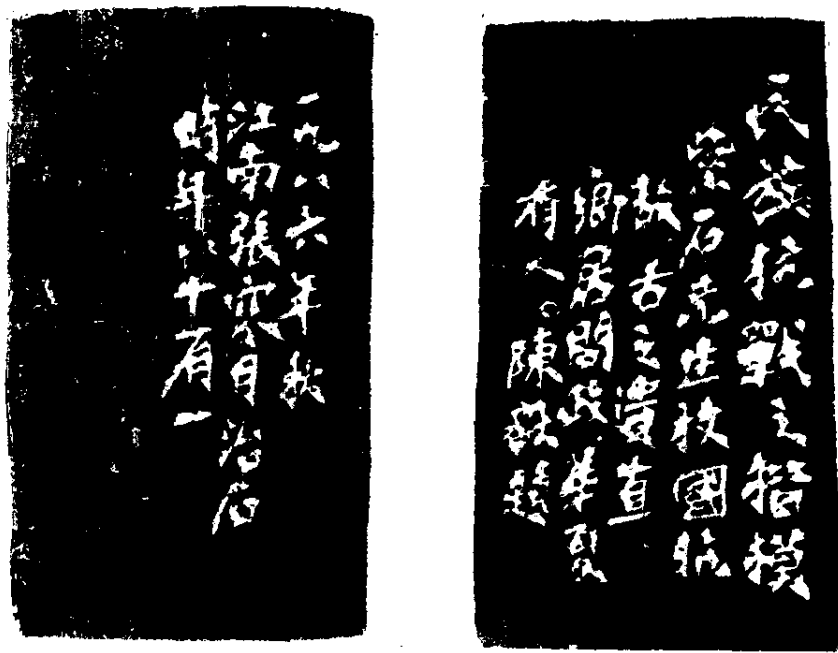 民族抗戰之楷模
榮石先生校國航
敵古之遺直
鄉居問政華夏
有人陳毅題
一九八六年秋
江南張寒月治石
時年八十有一